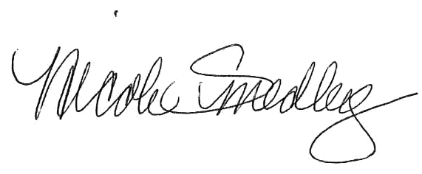 Nicole Smedley